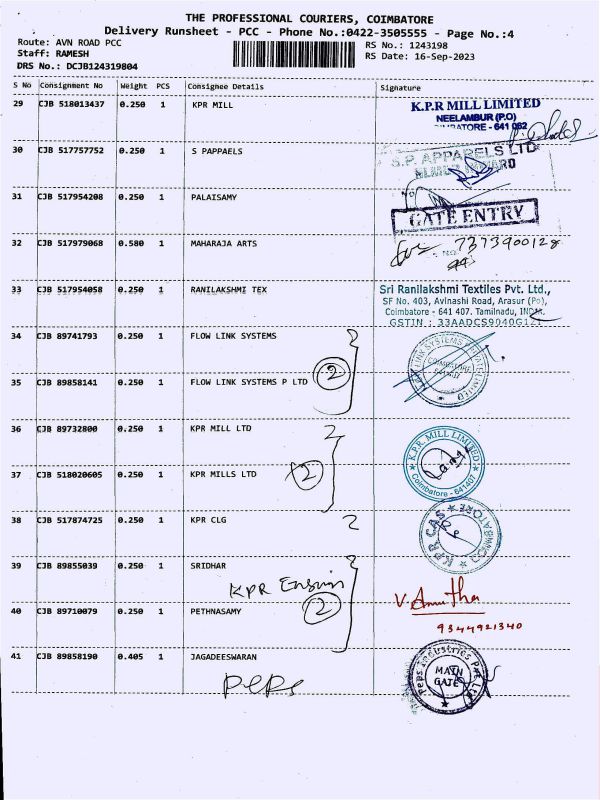 THE PROFESSIONAL COURIERS, COIMBATORE
Delivery Runsheet - PCC - Phone No.:0422-3505555 - Page No.:4
Route: AVN ROAD PCC RS No.: 1243198
Staff: RAMESH RS Date: 16-Sep-2023
DRS No.: DCJB124319804
S No Consignment No Weight PCS Consignee Details Signature
29 CJB 518013437 0.250 1 KPR MILL K.P.R MILL LIMITED
NEELAMBUR (P.O)
COIMBATORE - 641 062
30 CJB 517757752 0.250 1 S PAPPAELS S.P. APPARELS LTD
31 CJB 517954208 0.250 1 PALAISAMY
GATE ENTRY
32 CJB 517979068 0.580 1 MAHARAJA ARTS 7373900128
33 CJB 517954058 0.250 1 RANILAKSHMI TEX Sri Ranilakshmi Textiles Pvt. Ltd.,
SF No. 403, Avinashi Road, Arasur (Po),
Coimbatore - 641 407. Tamilnadu, INDIA.
GSTIN : 33AADCS9040G1Z1
34 CJB 89741793 0.250 1 FLOW LINK SYSTEMS
2
35 CJB 89858141 0.250 1 FLOW LINK SYSTEMS P LTD
36 CJB 89732800 0.250 1 KPR MILL LTD K.P.R. MILL LIMITED
Coimbatore - 641407
37 CJB 518020605 0.250 1 KPR MILLS LTD 2
38 CJB 517874725 0.250 1 KPR CLG 2 KPR CAS COIMBATORE
39 CJB 89855039 0.250 1 SRIDHAR
KPR
40 CJB 89710079 0.250 1 PETHNASAMY 2 V. Amutha
9344921340
41 CJB 89858190 0.405 1 JAGADEESWARAN Peps Industries Pvt Ltd
MAIN
GATE
Peps